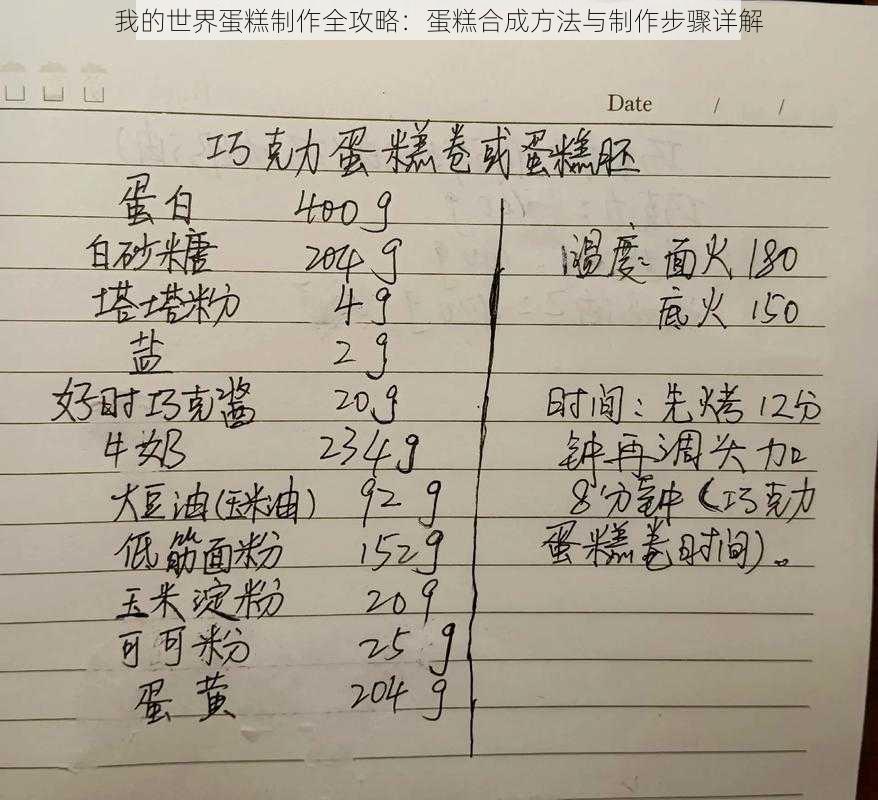 我的世界蛋糕制作全攻略：蛋糕合成方法与制作步骤详解
Date / /
巧克力蛋糕卷或蛋糕胚
蛋白 400g
白砂糖 204g
塔塔粉 4g
盐 2g
好时巧克酱 20g
牛奶 234g
大豆油(玉米油) 92g
低筋面粉 152g
玉米淀粉 20g
可可粉 25g
蛋黄 204g
温度：面火180
底火150
时间：先烤12分
钟再调头加
8分钟（巧克力
蛋糕卷时间）。